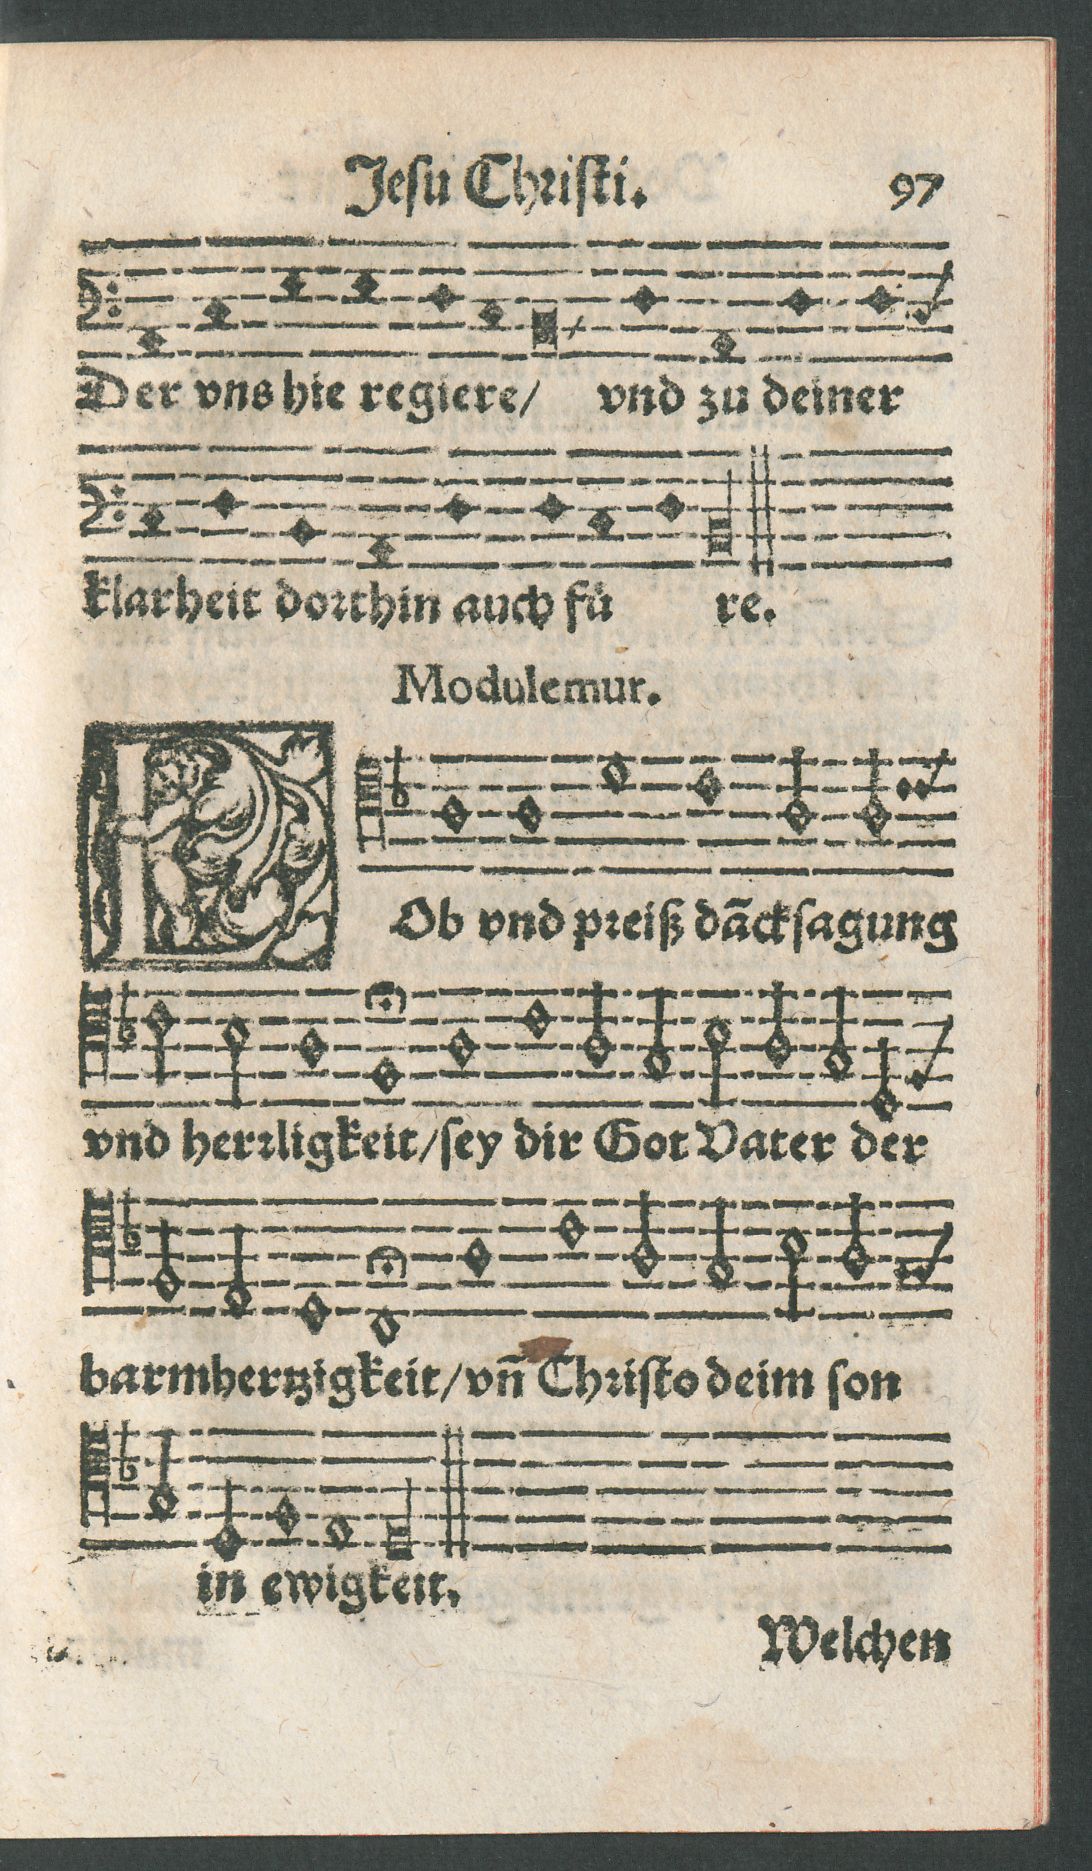 Jesu Christi. 97
Der vns hie regiere/ vnd zu deiner
klarheit dorthin auch fuͤ re.
Modulemur.
LOb vnd preiß dāck sagung
vnd herrligkeit/ sey dir Got Vater der
barmhertzigkeit/ vn̄ Christo deim son
in ewigkeit.
Welchen